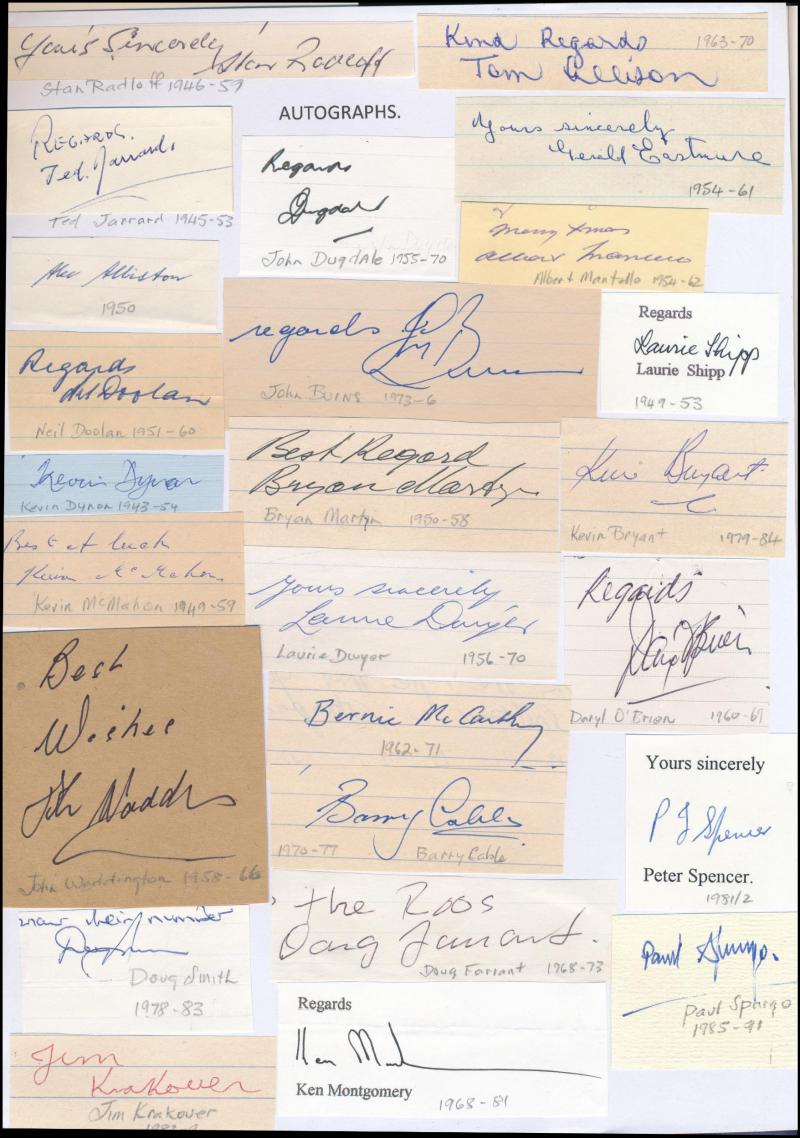 Yours Sincerely Stan Radloff
Stan Radloff 1946-59
Kind Regards 1963-70
Tom Allison
AUTOGRAPHS.
REGARDS.
Ted Jarrard.
Ted Jarrard 1945-53
Regards
Dugdale
John Dugdale 1955-70
Yours sincerely
Gerald Eastmure
1954-61
Merry Xmas
Albert Mantello
Albert Mantello 1954-62
Alec Alliston
1950
regards
John Burns 1973-6
Regards
Laurie Shipp
Laurie Shipp
1949-53
Regards
Neil Doolan
Neil Doolan 1951-60
Best Regard
Bryan Martyn
Bryan Martyn 1950-58
Kevin Bryant
Kevin Bryant 1979-84
Kevin Dynon
Kevin Dynon 1943-54
Best of luck
Kevin McMahon
Kevin McMahon 1949-59
Yours sincerely
Laurie Dwyer
Laurie Dwyer 1956-70
Regards
Daryl O'Brien
Daryl O'Brien 1960-69
Best
Wishes
John Waddington
John Waddington 1958-66
Bernie McCarthy
1962-71
Barry Cable
1970-77 Barry Cable
Yours sincerely
P J Spencer
Peter Spencer.
1981/2
number
Doug Smith
1978-83
The Roos
Doug Farrant.
Doug Farrant 1968-73
Paul Spargo.
Paul Spargo
1985-91
Regards
Ken Mont
Ken Montgomery
1968-81
Jim
Krakouer
Jim Krakouer